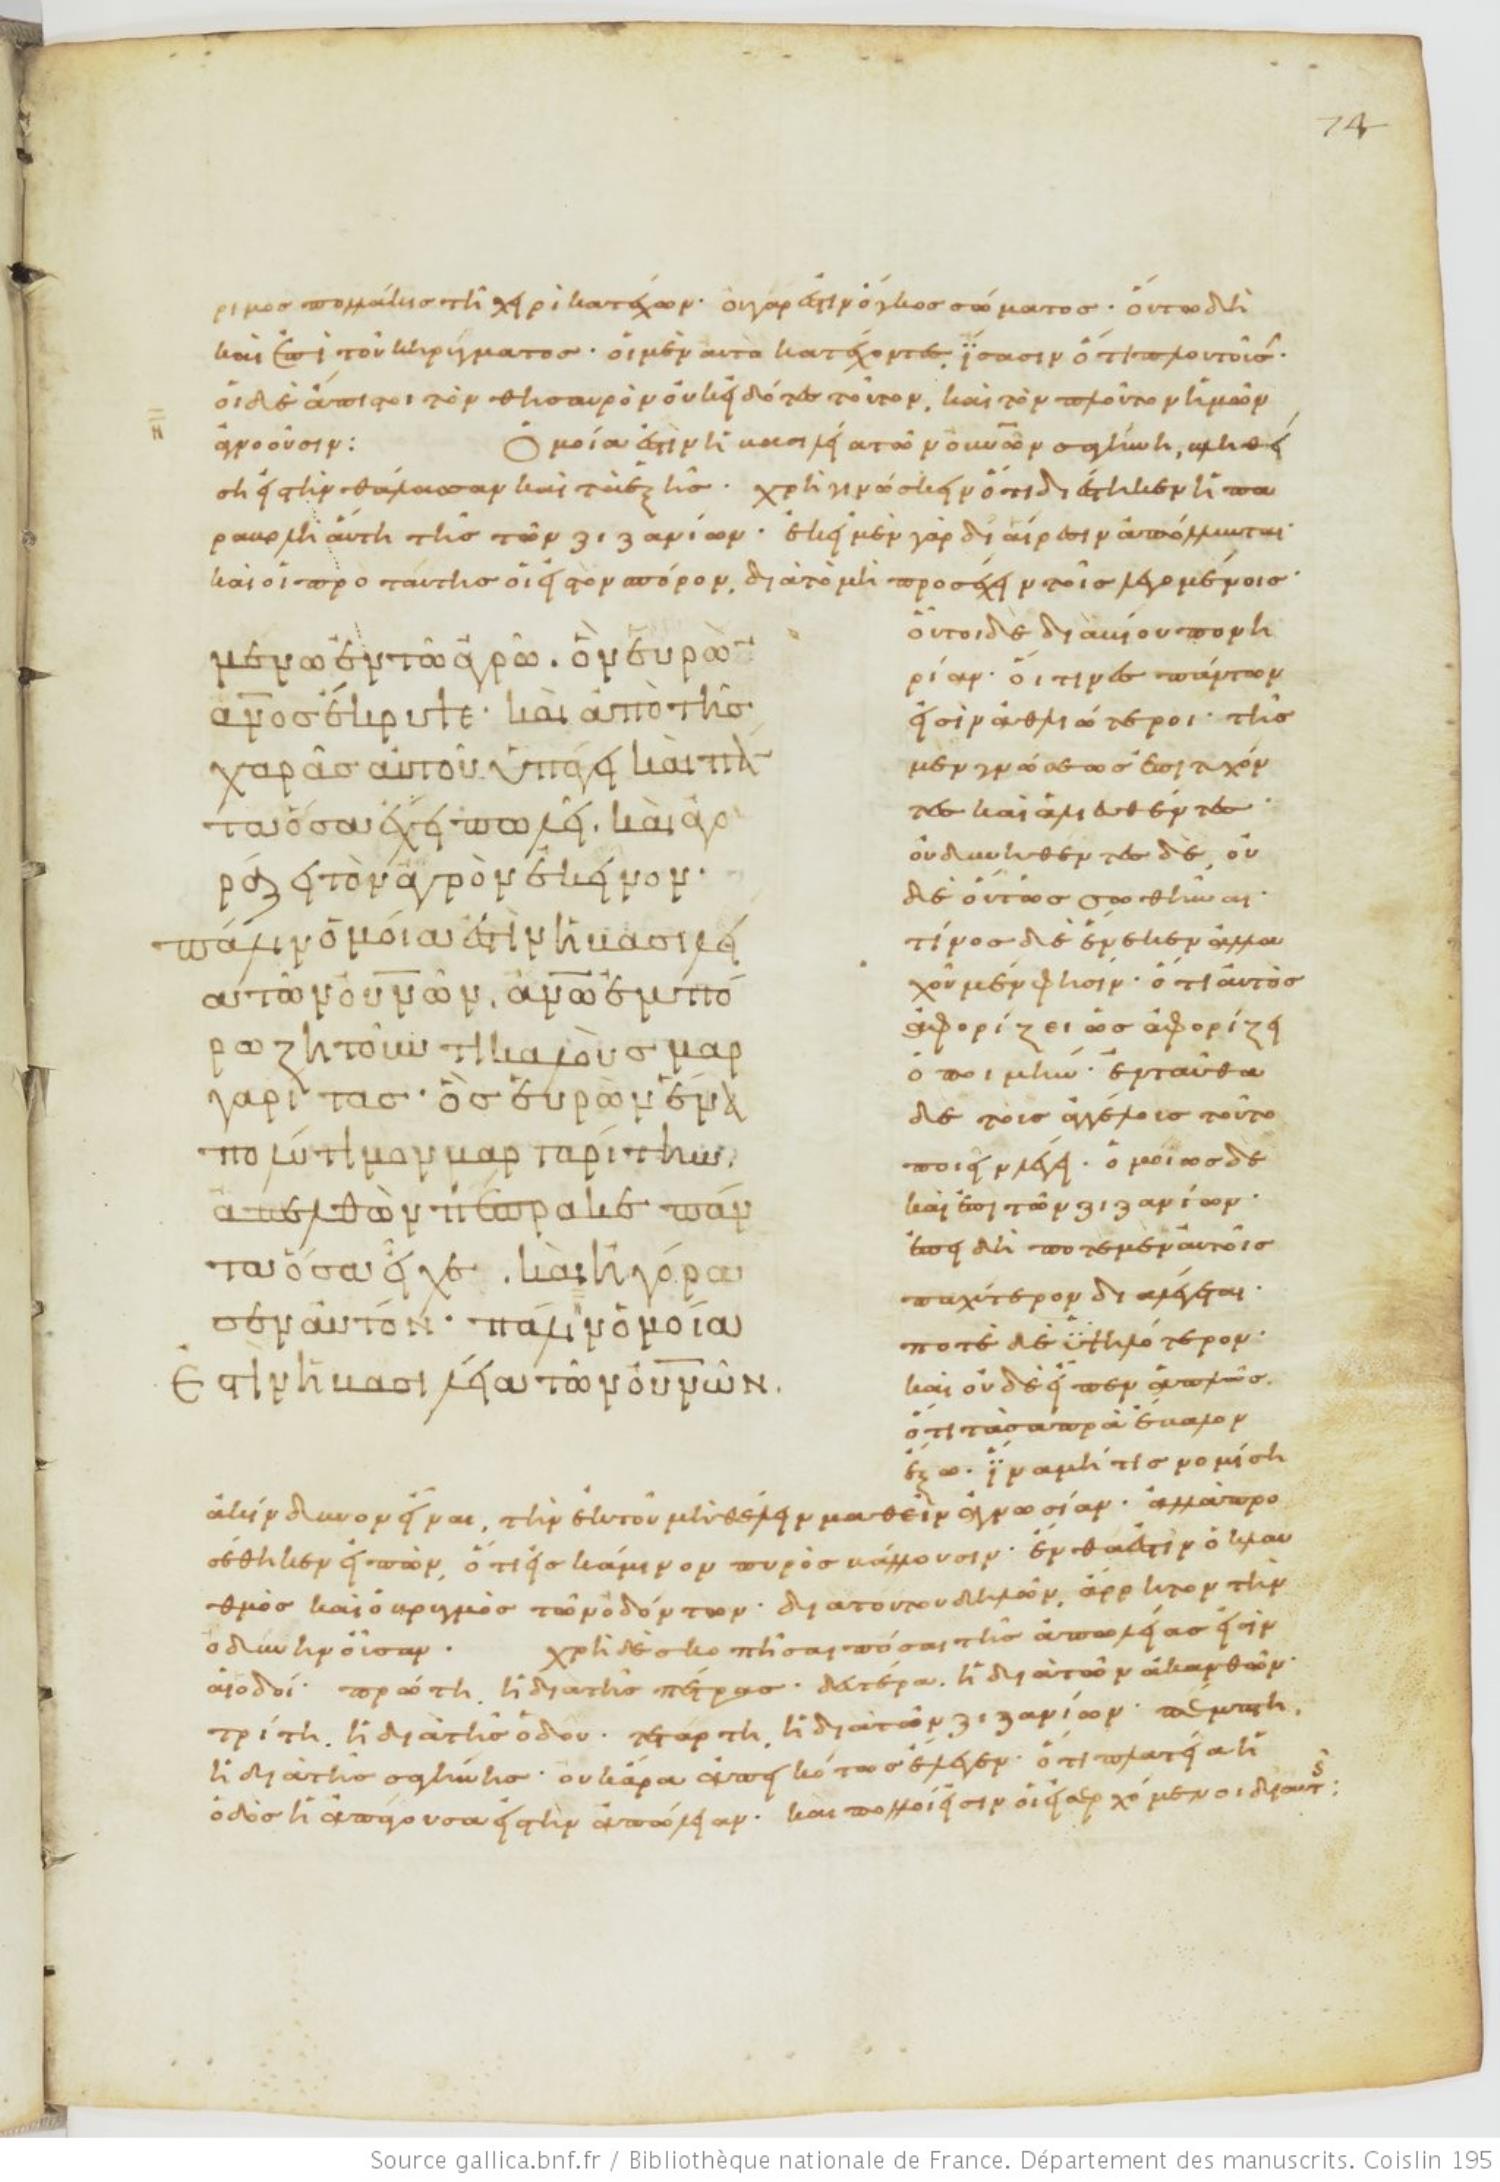 74
ριμος πολλάκις τῆ χειρὶ κατέχων· οὐ γάρ ἐστιν ὄγκος σώματος· οὕτω δὴ
καὶ ἐπὶ τοῦ κηρύγματος· οἱ μὲν αὐτὸ κατέχοντες, ἴσασιν ὅτι πλουτοῦσ·
οἱ δὲ ἄπιστοι τὸν θησαυρὸν οὐκ εἰδότες τοῦτον, καὶ τὸν πλοῦτον ἡμῶν
ἀγνοοῦσιν: Ὁμοία ἐστὶν ἡ βασιλεία τῶν οὐνῶν σαγήνη, βληθεί
ση εἰς τὴν θάλασσαν καὶ τὰ ἑξῆς· χρὴ γινώσκειν ὅτι διέστηκεν ἡ πα
ραβολὴ αὕτη τῆς τῶν ζιζανίων· ἐκεῖ μὲν γὰρ δι' αἵρεσιν ἀπόλλυνται·
καὶ οἱ πρὸ ταύτης οἱ εἰς τὸν σπόρον, διὰ τὸ μὴ προσέχειν τοῖς λεγομένοις·
μενω ἐν τῶ ἀγρῶ. ὃν εὑρὼν
ἀνος ἔκρυψε· καὶ ἀπὸ τῆς
χαρᾶς αὐτοῦ ὑπάγει καὶ πάν
τα ὅσα ἔχει πωλεῖ. καὶ ἀγο
ράζει τὸν ἀγρὸν ἐκεῖνον·
πάλιν ὁμοία ἐστὶν ἡ βασιλεί
α τῶν οὐνῶν. ἀνω ἐμπό
ρω ζητοῦντι καλοὺς μαρ
γαρίτας· ὃς εὑρὼν ἕνα
πολύτιμον μαργαρίτην,
ἀπελθὼν πέπρακε πάν
τα ὅσα εἶχε, καὶ ἠγόρα
σεν αὐτόν· πάλιν ὁμοία
ἐστὶν ἡ βασιλεία τῶν οὐνῶν.
οὗτοι δὲ διὰ βίου πονη
ρίαν· οἵ τινες πάντων
εἰσὶν ἀθλιώτεροι· τῆς
μὲν γνώσεως ἐπιτυχόν
τες καὶ ἁλιευθέντες·
οὐ δυνηθέντες δὲ, οὐ
δὲ οὕτως σωθῆναι·
τίνος δὲ ἕνεκεν ἀλλα
χοῦ μέν φησιν· ὅτι αὐτὸς
ἀφορίζει ὡς ἀφορίζει
ὁ ποιμήν· ἐνταῦθα
δὲ τοὺς ἀγγέλους τοῦτο
ποιεῖν λέγει· ὁμοίως δὲ
καὶ ἐπὶ τῶν ζιζανίων·
ἐπειδὴ ποτὲ μὲν αὐτοῖς
παχύτερον διαλέγεται·
ποτὲ δὲ ὑψηλότερον·
καὶ οὐδὲ εἶπεν ἁπλῶς,
ὅτι τὰ σαπρὰ ἔβαλον
ἔξω· ἵνα μή τις νομίση
ἀκίνδυνον εἶναι, τὴν ἐκ τοῦ μὴ θέλειν μαθεῖν ἀγνωσίαν· ἀλλὰ προ
σέθηκεν εἰπὼν, ὅτι εἰς κάμινον πυρὸς βάλλουσιν· ἔνθα ἐστὶν ὁ κλαυ
θμὸς καὶ ὁ βρυγμὸς τῶν ὀδόντων· διὰ τούτου δηλῶν, ἄρρητον τὴν
ὀδύνην οὖσαν· χρὴ δὲ σκοπῆσαι πόσαι τῆς ἀπωλείας εἰσὶν
αἱ ὁδοί· πρώτη, ἡ διὰ τῆς πέτρας· δευτέρα, ἡ διὰ τῶν ἀκανθῶν·
τρίτη, ἡ διὰ τῆς ὁδοῦ· τετάρτη, ἡ διὰ τῶν ζιζανίων· πέμπτη,
ἡ διὰ τῆς σαγήνης· οὐκ ἄρα ἀπεικότως ἔλεγεν· ὅτι πλατεία ἡ
ὁδὸς ἡ ἀπάγουσα εἰς τὴν ἀπώλειαν· καὶ πολλοί εἰσιν οἱ εἰσερχόμενοι δι' αὐτῆς:
Source gallica.bnf.fr / Bibliothèque nationale de France. Département des manuscrits. Coislin 195